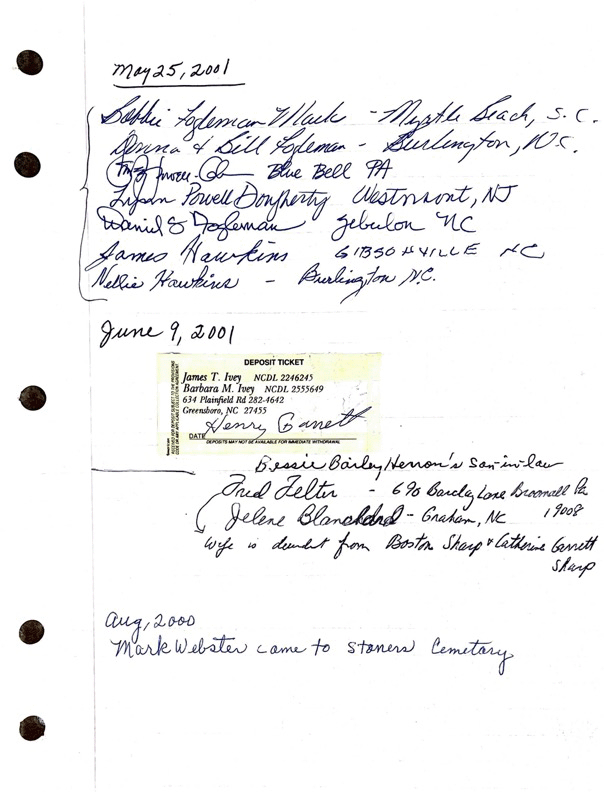 May 25, 2001
Bobbie Fogleman Mack - Myrtle Beach, S.C.
Donna & Bill Fogleman - Burlington, N.C.
Blue Bell PA
Susan Powell Dougherty Westmont, NJ
Daniel S Fogleman Zebulon NC
James Hawkins GIBSONVILLE NC
Nellie Hawkins - Burlington N.C.
June 9, 2001
DEPOSIT TICKET
James T. Ivey NCDL 2246245
Barbara M. Ivey NCDL 2555649
634 Plainfield Rd 282-4642
Greensboro, NC 27455
Henry Garrett
DATE
DEPOSITS MAY NOT BE AVAILABLE FOR IMMEDIATE WITHDRAWAL
Bessie Barley Herron's son-in-law
Fred Felter - 690 Barclay Lane Broomall Pa
19008
Jelene Blanchard - Graham, NC
Wife is decendent from Boston Sharp & Catherine Garrett
Sharp
Aug, 2000
Mark Webster came to Stoners Cemetary